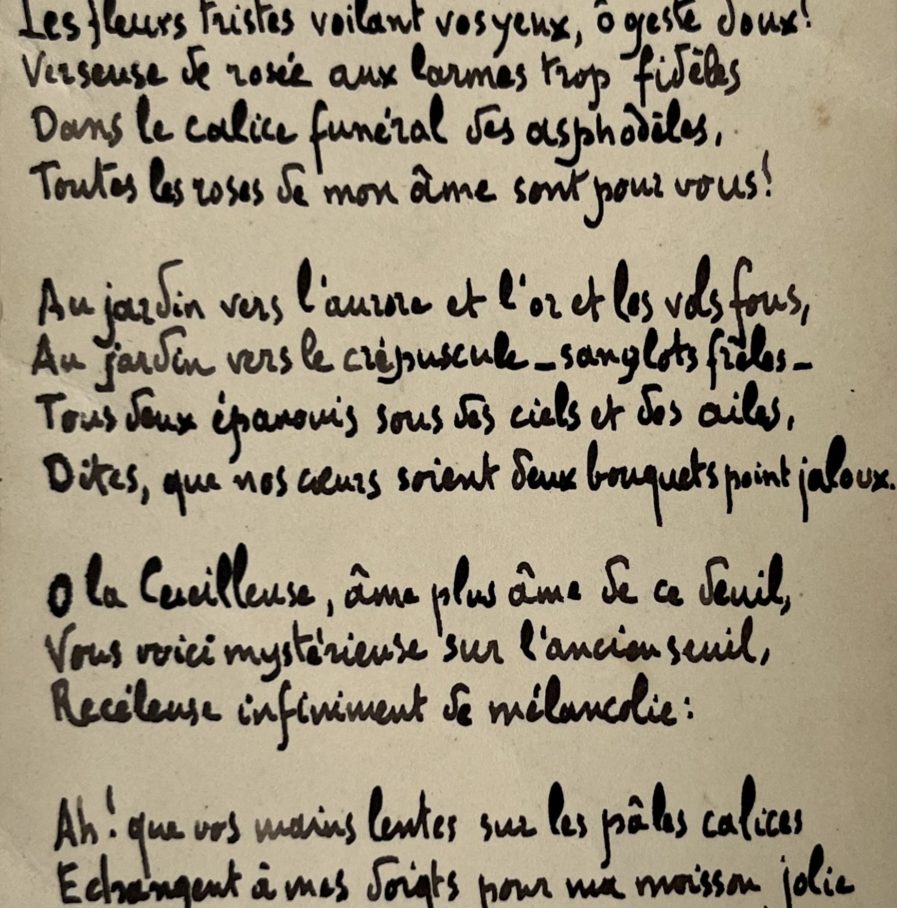 Les fleurs tristes voilant vos yeux, ô geste doux!
Verseuse de rosée aux larmes trop fidèles
Dans le calice funéral des asphodèles,
Toutes les roses de mon âme sont pour vous!
Au jardin vers l'aurore et l'or et les vols fous,
Au jardin vers le crépuscule _ sanglots frêles _
Tous deux épanouis sous des ciels et des ailes,
Dites, que nos cœurs soient deux bouquets point jaloux.
O la Cueilleuse, âme plus âme de ce deuil,
Vous voici mystérieuse sur l'ancien seuil,
Recéleuse infiniment de mélancolie:
Ah! que vos mains lentes sur les pâles calices
Echangent à mes doigts pour ma moisson jolie